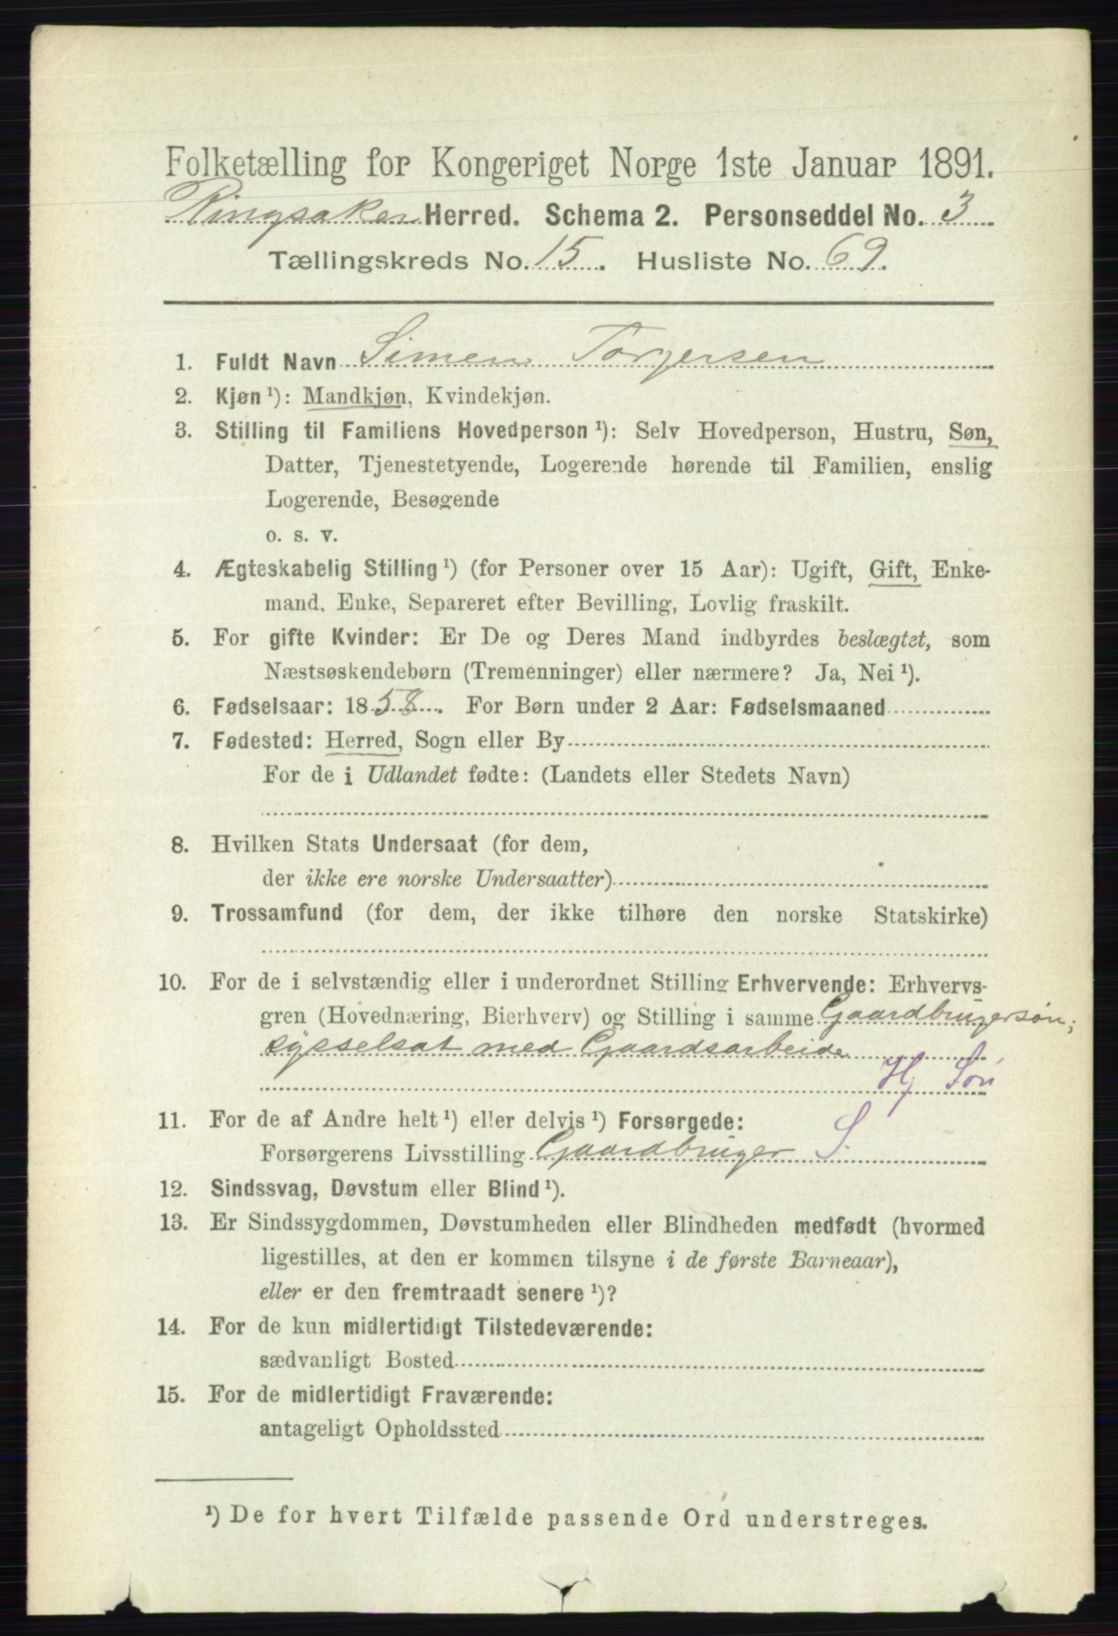 Folketælling for Kongeriget Norge 1ste Januar 1891.
Ringsaker Herred. Schema 2. Personseddel No. 3
Tællingskreds No. 15. Husliste No. 69.
1. Fuldt Navn Simen Torgersen
2. Kjøn ¹): Mandkjøn, Kvindekjøn.
3. Stilling til Familiens Hovedperson ¹): Selv Hovedperson, Hustru, Søn,
Datter, Tjenestetyende, Logerende hørende til Familien, enslig
Logerende, Besøgende
o. s. v.
4. Ægteskabelig Stilling ¹) (for Personer over 15 Aar): Ugift, Gift, Enke-
mand, Enke, Separeret efter Bevilling, Lovlig fraskilt.
5. For gifte Kvinder: Er De og Deres Mand indbyrdes beslægtet, som
Næstsøskendebørn (Tremenninger) eller nærmere? Ja, Nei ¹).
6. Fødselsaar: 1858. For Børn under 2 Aar: Fødselsmaaned
7. Fødested: Herred, Sogn eller By
For de i Udlandet fødte: (Landets eller Stedets Navn)
8. Hvilken Stats Undersaat (for dem,
der ikke ere norske Undersaatter)
9. Trossamfund (for dem, der ikke tilhøre den norske Statskirke)
10. For de i selvstændig eller i underordnet Stilling Erhvervende: Erhvervs-
gren (Hovednæring, Bierhverv) og Stilling i samme Gaardbrugersøn;
sysselsat med Gaardsarbeide
Hj Søn
11. For de af Andre helt ¹) eller delvis ¹) Forsørgede:
Forsørgerens Livsstilling Gaardbruger S.
12. Sindssvag, Døvstum eller Blind ¹).
13. Er Sindssygdommen, Døvstumheden eller Blindheden medfødt (hvormed
ligestilles, at den er kommen tilsyne i de første Barneaar),
eller er den fremtraadt senere ¹)?
14. For de kun midlertidigt Tilstedeværende:
sædvanligt Bosted
15. For de midlertidigt Fraværende:
antageligt Opholdssted
¹) De for hvert Tilfælde passende Ord understreges.